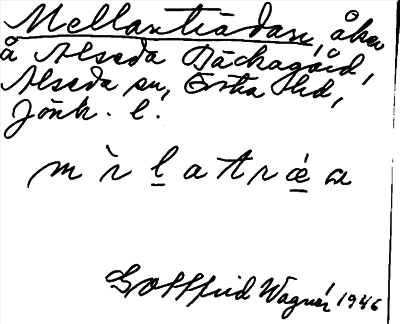 Mellanträdan, åker
å Alseda Däckagård,
Alseda sn, Östra hd,
Jönk. l.
m ì l̲ a t r ǽ̲ a
Gottfrid Wagnér 1946